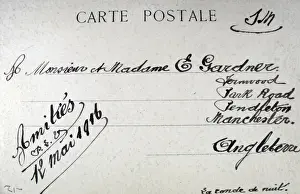 CARTE POSTALE
S.M
A Monsieur & Madame E Gardner
Fernwood
Park Road
Pendleton
Manchester.
Angleterre
Amitiés
12 mai 1916
La ronde de nuit.